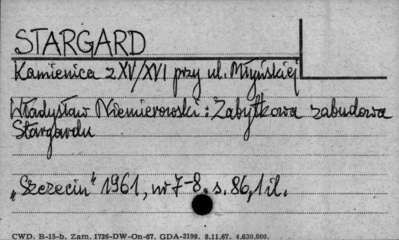 STARGARD
Kamienica z XV/XVI przy ul. Młyńskiej
Władysław Niemierowski: Zabytkowa zabudowa
Stargardu
„Szczecin" 1961, nr 7-8. s. 86, 1 il.
CWD. B-15-b. Zam. 1726-DW-On-67. GDA-3198. 8.11.67. 4.630.000.